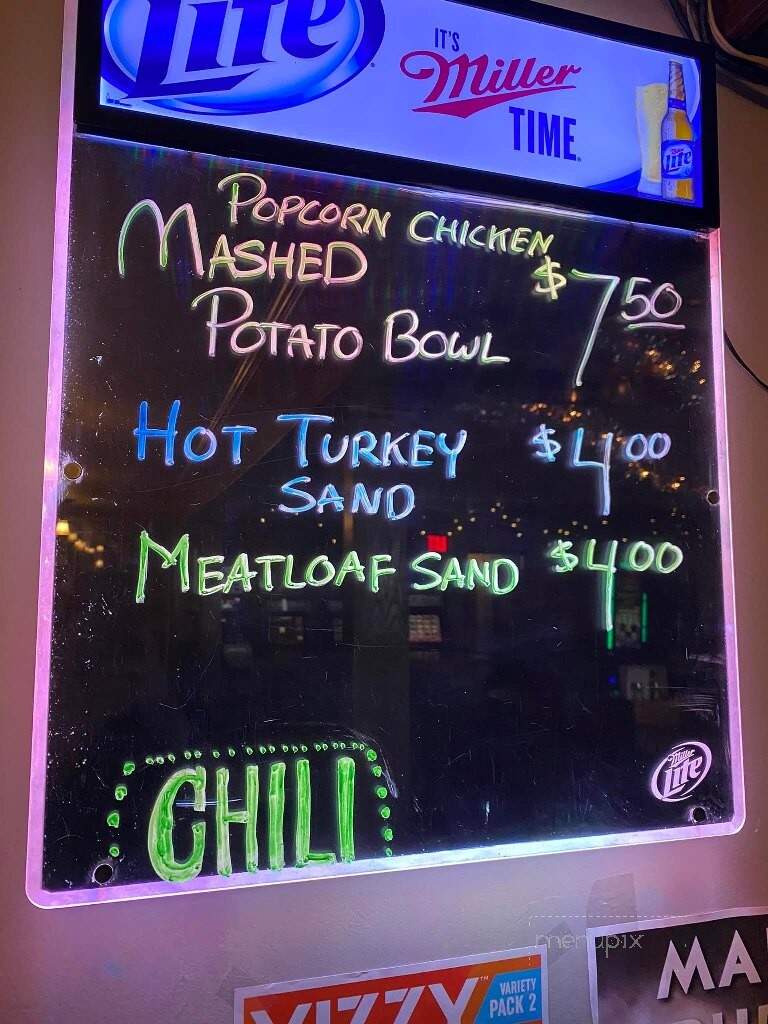 Lite
IT'S
Miller
TIME.
Miller Lite
POPCORN CHICKEN
MASHED
POTATO BOWL
$7 50
HOT TURKEY $4 00
SAND
MEATLOAF SAND $4 00
CHILI
Miller
Lite
menupix
VIZZY™
VARIETY
PACK 2
MA